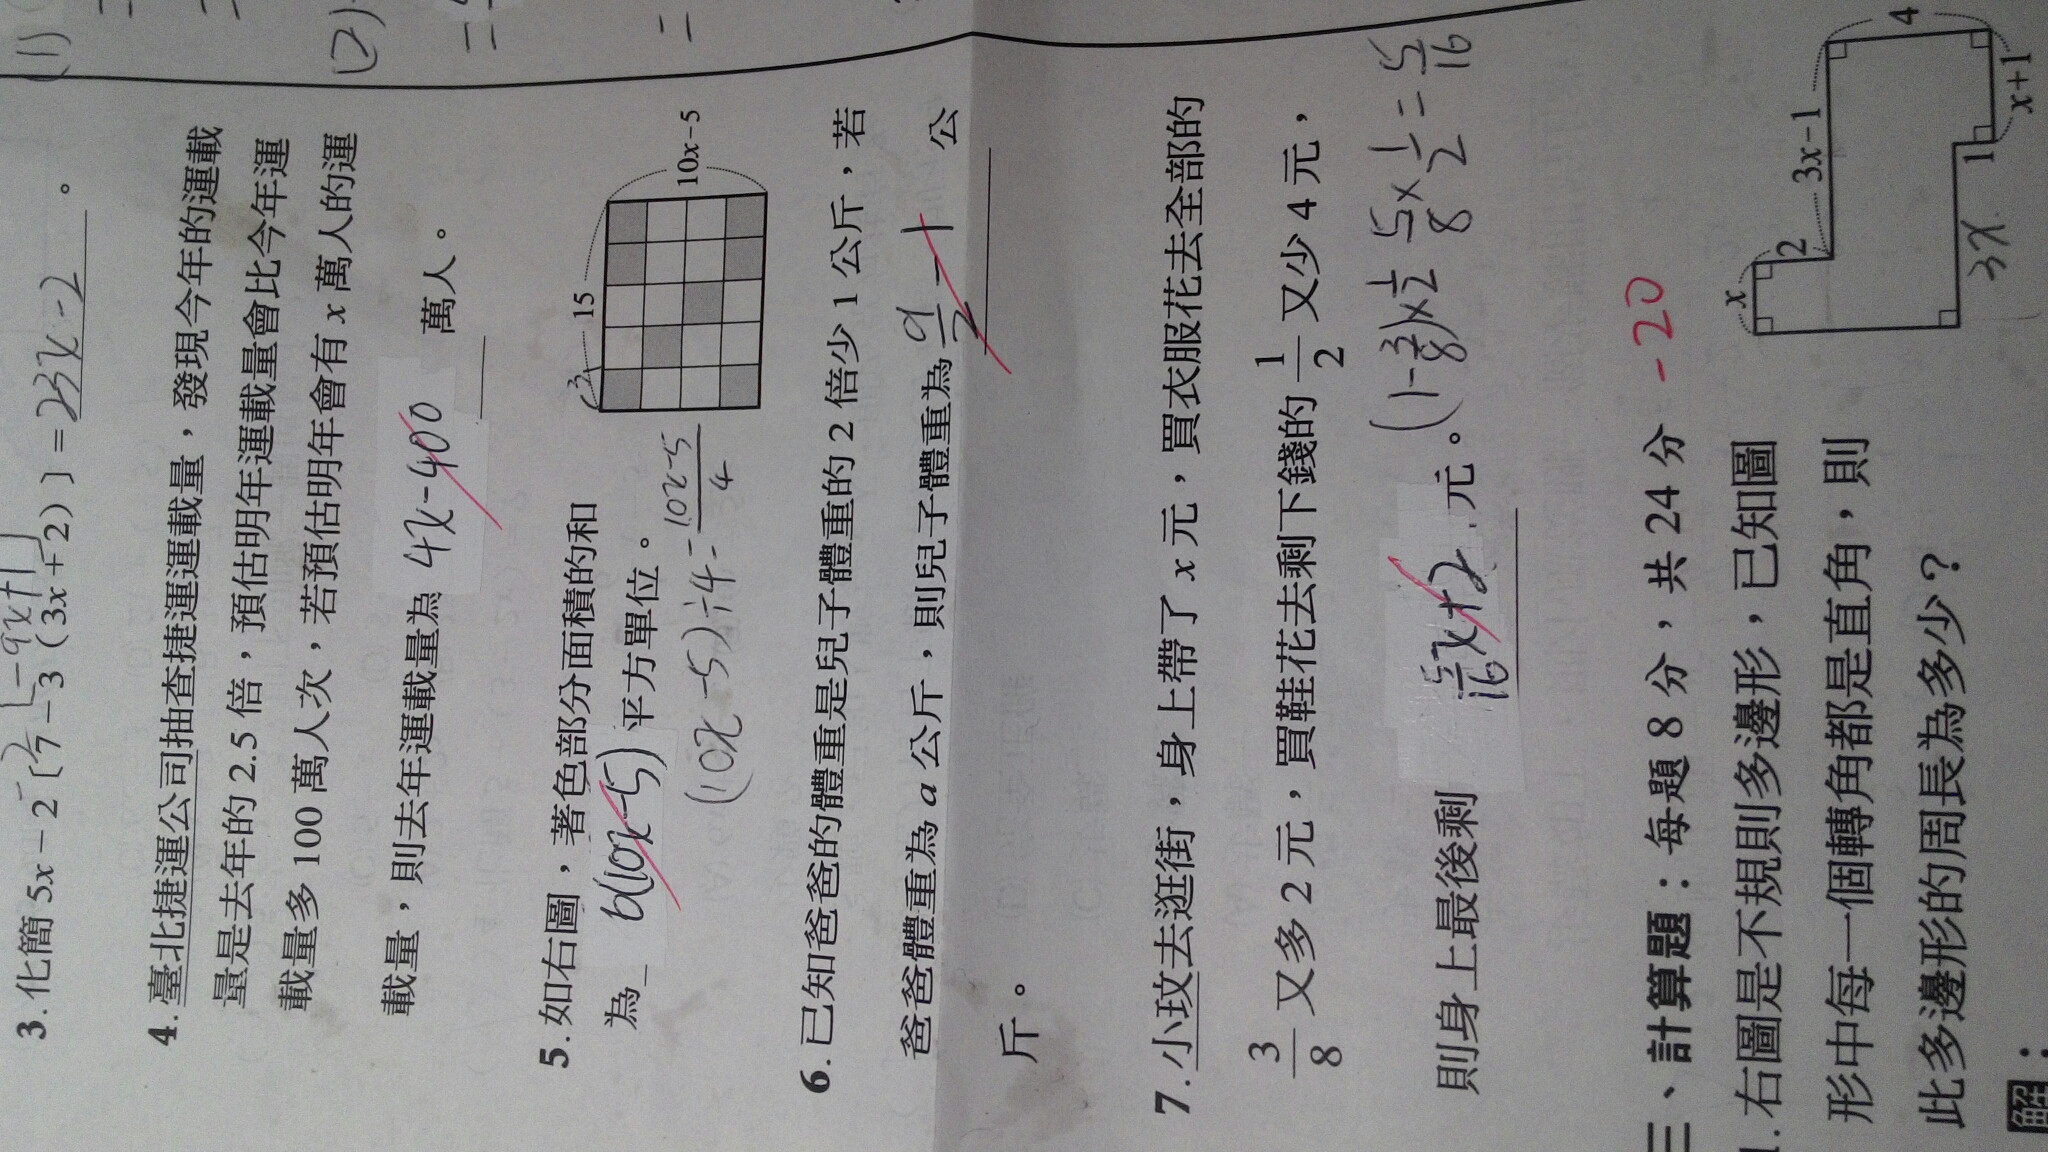 (1)
(2)
=
=
=
-9x+1
3.化簡 5x－2〔7－3（3x＋2）〕＝23x-2。
4.臺北捷運公司抽查捷運運載量，發現今年的運載
量是去年的 2.5 倍，預估明年運載量會比今年運
載量多 100 萬人次，若預估明年會有 x 萬人的運
載量，則去年運載量為 4x-400 萬人。
5.如右圖，著色部分面積的和
為 6(10x-5) 平方單位。
(10x-5)÷4=10x-5/4
3
15
10x−5
6.已知爸爸的體重是兒子體重的 2 倍少 1 公斤，若
爸爸體重為 a 公斤，則兒子體重為 公
斤。
7.小玟去逛街，身上帶了 x 元，買衣服花去全部的
3/8 又多 2 元，買鞋花去剩下錢的 1/2 又少 4 元，
則身上最後剩 5/16x+2 元。
(1-3/8)×1/2 5/8×1/2=5/16
三、計算題：每題 8 分，共 24 分 -20
1.右圖是不規則多邊形，已知圖
形中每一個轉角都是直角，則
此多邊形的周長為多少？
x
2
3x−1
4
x+1
1
3x
解：